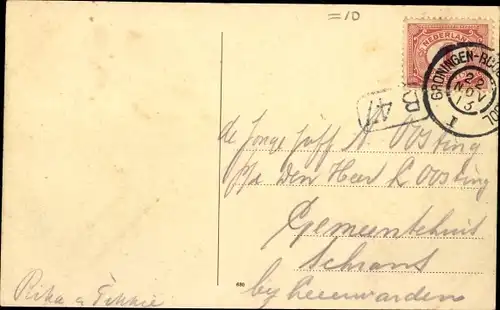 =10
NEDERLAND
GRONINGEN-
22
NOV
13
I
de Jonge Joff A. Oosting
p/a den Heer L Oosting
Gemeentehuis
Schrans
by Leeuwarden
Rika